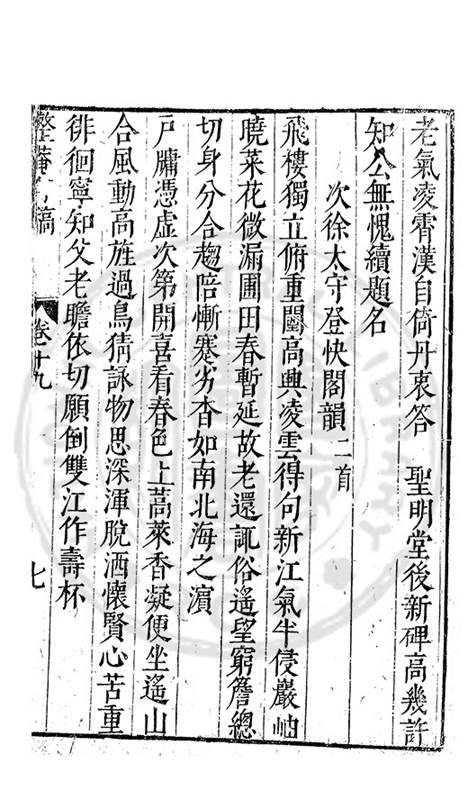 老氣凌霄漢自倚丹衷答　聖明堂後新碑高幾許
知公無愧續題名
次徐太守登快閣韻二首
飛樓獨立俯重闉高興凌雲得句新江氣半侵巖岫
曉菜花微漏圃田春暫延故老還諏俗遙望窮簷總
切身分合趨陪慚蹇劣杳如南北海之濵
戸牗憑虚次第開喜看春色上蒿萊香凝便坐遙山
合風動高旌過鳥猜詠物思深渾脫洒懷賢心苦重
徘徊寧知父老瞻依切願倒雙江作壽杯
整菴存稿
卷十九
七